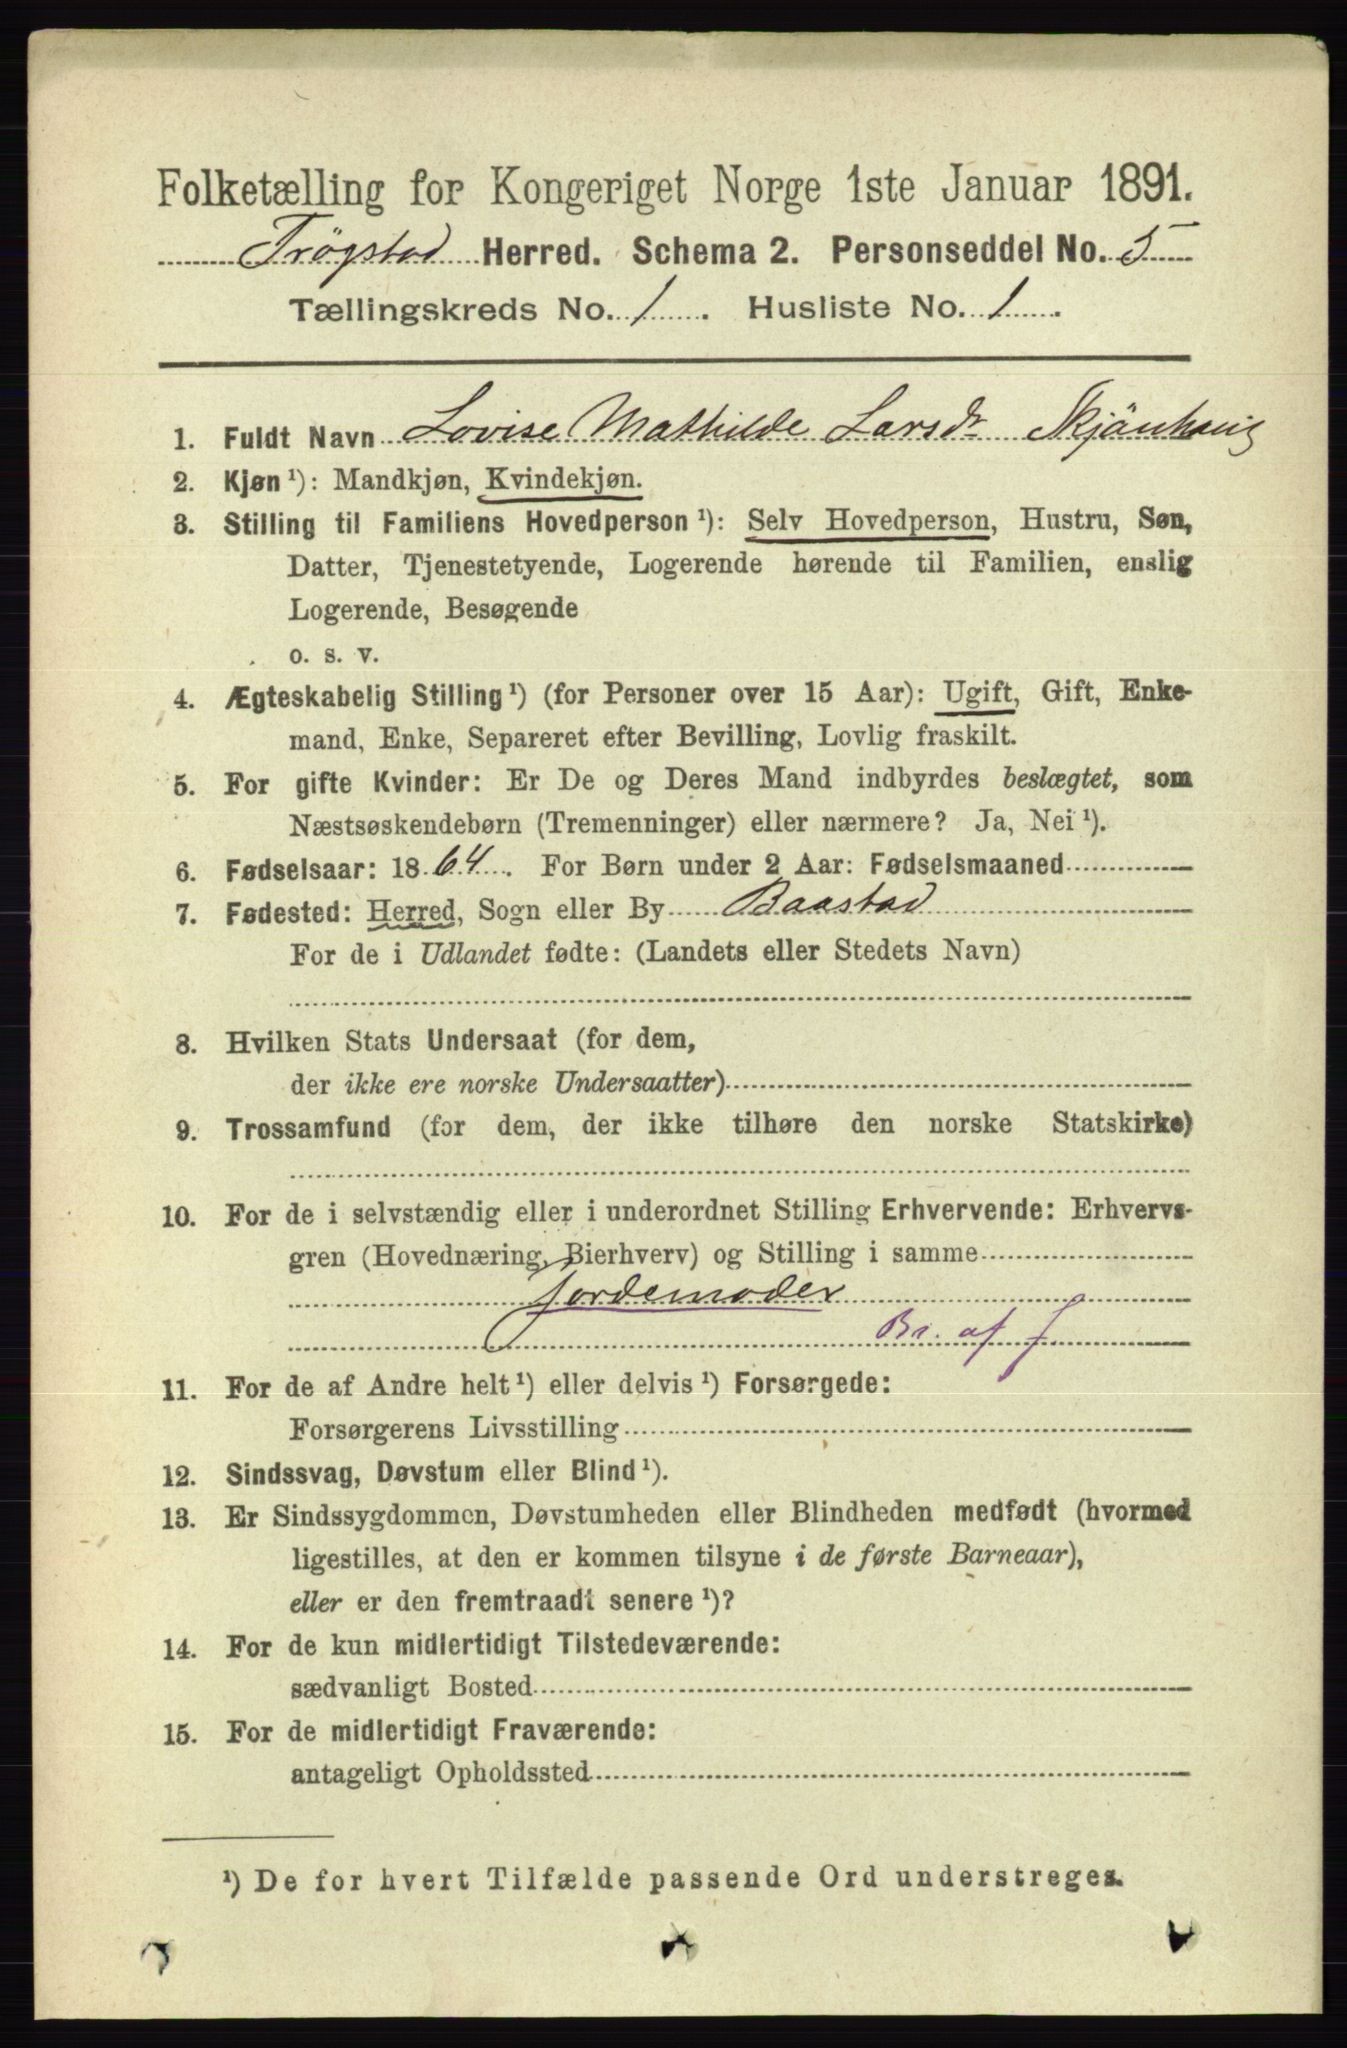 Folketælling for Kongeriget Norge 1ste Januar 1891.
Trögstad Herred. Schema 2. Personseddel No. 5
Tællingskreds No. 1. Husliste No. 1.
1. Fuldt Navn Lovise Mathilde Larsdr Skjönhaug
2. Kjøn ¹): Mandkjøn, Kvindekjøn.
3. Stilling til Familiens Hovedperson ¹): Selv Hovedperson, Hustru, Søn,
Datter, Tjenestetyende, Logerende hørende til Familien, enslig
Logerende, Besøgende
o. s. v.
4. Ægteskabelig Stilling ¹) (for Personer over 15 Aar): Ugift, Gift, Enke-
mand, Enke, Separeret efter Bevilling, Lovlig fraskilt.
5. For gifte Kvinder: Er De og Deres Mand indbyrdes beslægtet, som
Næstsøskendebørn (Tremenninger) eller nærmere? Ja, Nei ¹).
6. Fødselsaar: 1864. For Børn under 2 Aar: Fødselsmaaned
7. Fødested: Herred, Sogn eller By Baastad
For de i Udlandet fødte: (Landets eller Stedets Navn)
8. Hvilken Stats Undersaat (for dem,
der ikke ere norske Undersaatter)
9. Trossamfund (for dem, der ikke tilhøre den norske Statskirke)
10. For de i selvstændig eller i underordnet Stilling Erhvervende: Erhvervs-
gren (Hovednæring, Bierhverv) og Stilling i samme
Jordemoder
Br. af J
11. For de af Andre helt ¹) eller delvis ¹) Forsørgede:
Forsørgerens Livsstilling
12. Sindssvag, Døvstum eller Blind ¹).
13. Er Sindssygdommen, Døvstumheden eller Blindheden medfødt (hvormed
ligestilles, at den er kommen tilsyne i de første Barneaar),
eller er den fremtraadt senere ¹)?
14. For de kun midlertidigt Tilstedeværende:
sædvanligt Bosted
15. For de midlertidigt Fraværende:
antageligt Opholdssted
¹) De for hvert Tilfælde passende Ord understreges.